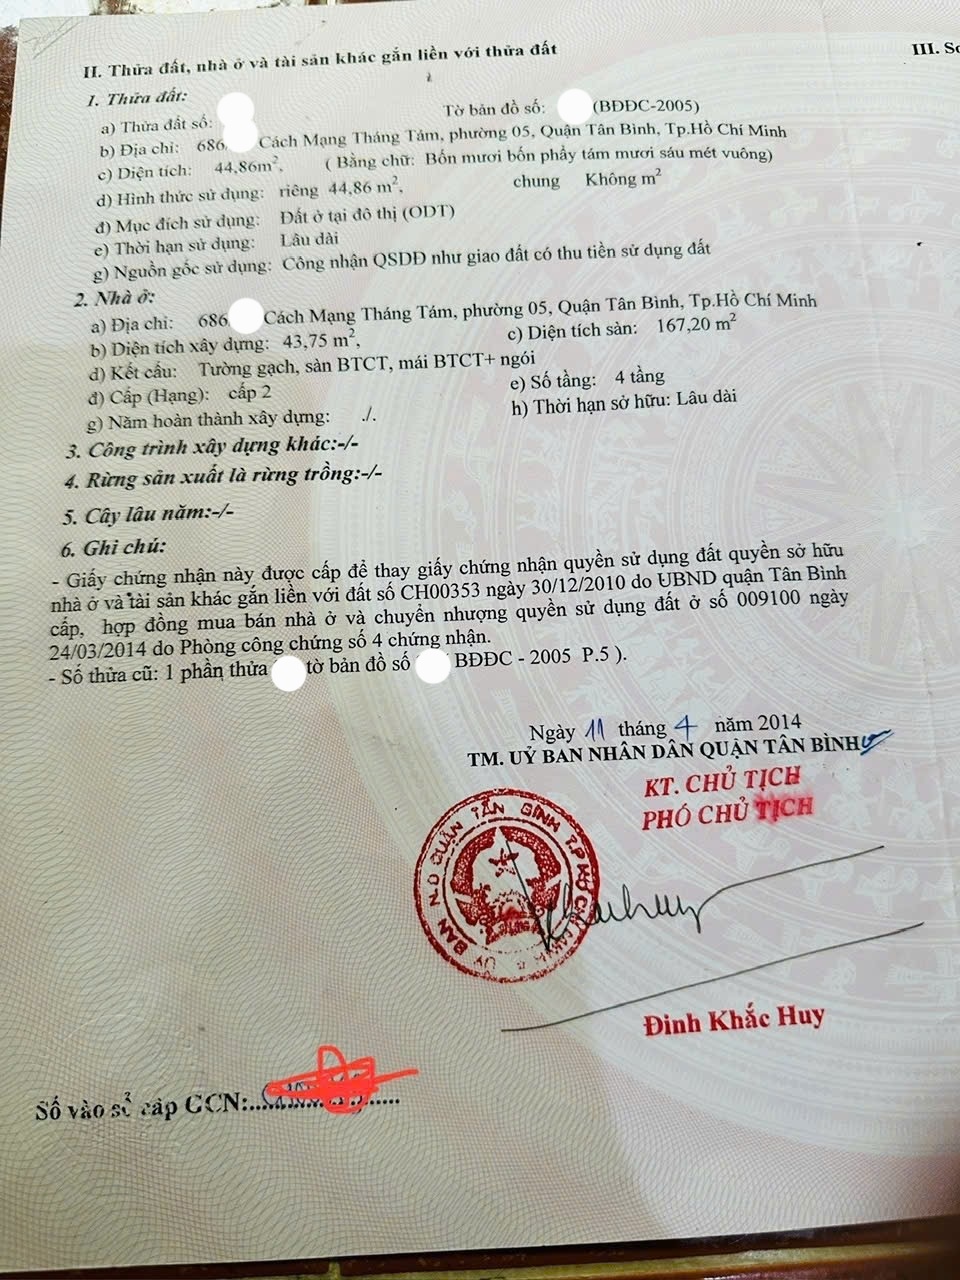 II. Thửa đất, nhà ở và tài sản khác gắn liền với thửa đất
III. Sơ
1. Thửa đất:
a) Thửa đất số: Tờ bản đồ số: (BĐĐC-2005)
b) Địa chỉ: 686 Cách Mạng Tháng Tám, phường 05, Quận Tân Bình, Tp.Hồ Chí Minh
c) Diện tích: 44,86m², ( Bằng chữ: Bốn mươi bốn phẩy tám mươi sáu mét vuông)
d) Hình thức sử dụng: riêng 44,86 m², chung Không m²
đ) Mục đích sử dụng: Đất ở tại đô thị (ODT)
e) Thời hạn sử dụng: Lâu dài
g) Nguồn gốc sử dụng: Công nhận QSDĐ như giao đất có thu tiền sử dụng đất
2. Nhà ở:
a) Địa chỉ: 686 Cách Mạng Tháng Tám, phường 05, Quận Tân Bình, Tp.Hồ Chí Minh
b) Diện tích xây dựng: 43,75 m², c) Diện tích sàn: 167,20 m²
d) Kết cấu: Tường gạch, sàn BTCT, mái BTCT+ ngói
đ) Cấp (Hạng): cấp 2 e) Số tầng: 4 tầng
g) Năm hoàn thành xây dựng: ./. h) Thời hạn sở hữu: Lâu dài
3. Công trình xây dựng khác:-/-
4. Rừng sản xuất là rừng trồng:-/-
5. Cây lâu năm:-/-
6. Ghi chú:
- Giấy chứng nhận này được cấp để thay giấy chứng nhận quyền sử dụng đất quyền sở hữu
nhà ở và tài sản khác gắn liền với đất số CH00353 ngày 30/12/2010 do UBND quận Tân Bình
cấp, hợp đồng mua bán nhà ở và chuyển nhượng quyền sử dụng đất ở số 009100 ngày
24/03/2014 do Phòng công chứng số 4 chứng nhận.
- Số thửa cũ: 1 phần thửa tờ bản đồ số BĐĐC - 2005 P.5 ).
Ngày 11 tháng 4 năm 2014
TM. UỶ BAN NHÂN DÂN QUẬN TÂN BÌNH
KT. CHỦ TỊCH
PHÓ CHỦ TỊCH
Đinh Khắc Huy
Số vào sổ cấp GCN: